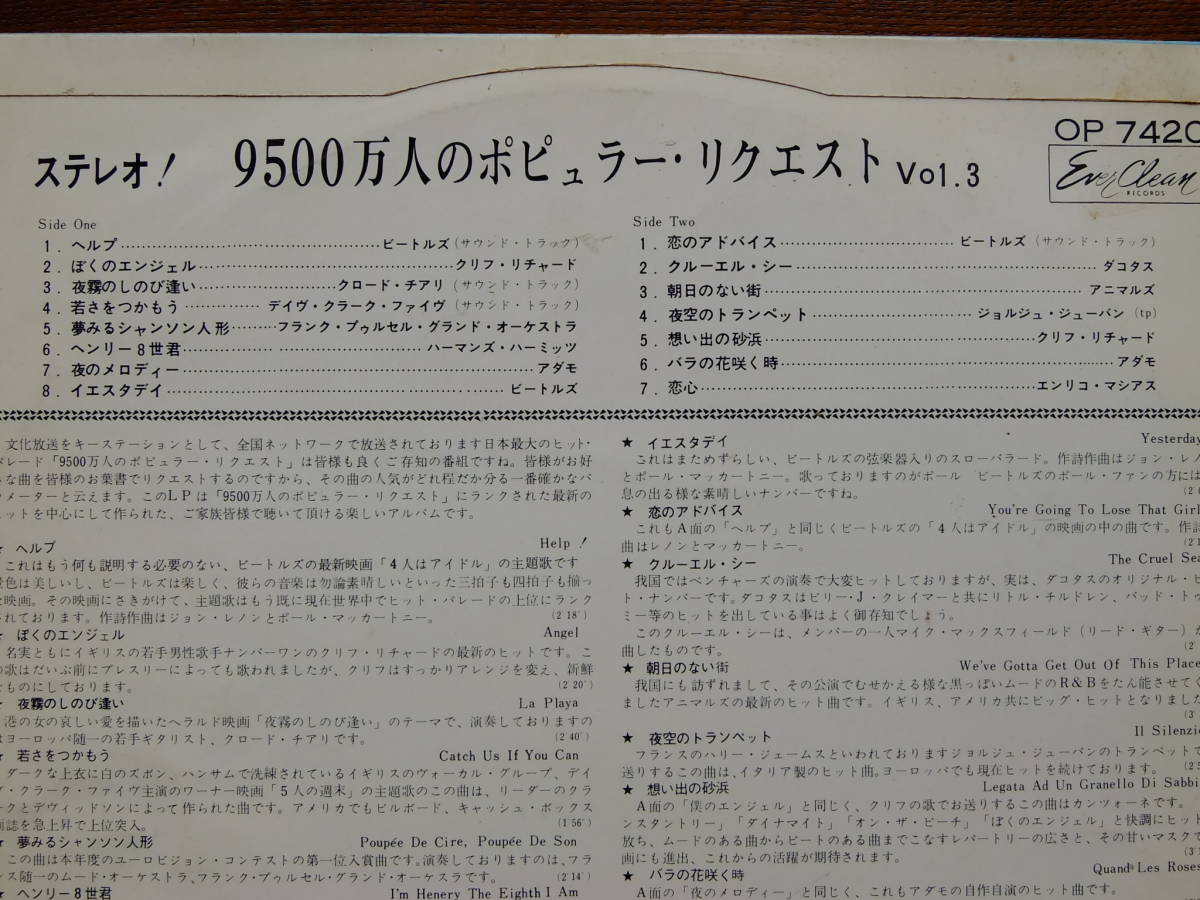 OP 7420
ステレオ! 9500万人のポピュラー・リクエスト Vol.3
Ever Clean
RECORDS
Side One
1. ヘルプ ビートルズ (サウンド・トラック)
2. ぼくのエンジェル クリフ・リチャード
3. 夜霧のしのび逢い クロード・チアリ (サウンド・トラック)
4. 若さをつかもう デイヴ・クラーク・ファイヴ (サウンド・トラック)
5. 夢みるシャンソン人形 フランク・プゥルセル・グランド・オーケストラ
6. ヘンリー8世君 ハーマンズ・ハーミッツ
7. 夜のメロディー アダモ
8. イエスタデイ ビートルズ
Side Two
1. 恋のアドバイス ビートルズ (サウンド・トラック)
2. クルーエル・シー ダコタス
3. 朝日のない街 アニマルズ
4. 夜空のトランペット ジョルジュ・ジューバン (tp)
5. 想い出の砂浜 クリフ・リチャード
6. バラの花咲く時 アダモ
7. 恋心 エンリコ・マシアス
文化放送をキーステーションとして、全国ネットワークで放送されております日本最大のヒット・
パレード「9500万人のポピュラー・リクエスト」は皆様も良くご存知の番組ですね。皆様がお好
な曲を皆様のお葉書でリクエストするのですから、その曲の人気がどれ程だか分る一番確かなバ
メーターと云えます。このLPは「9500万人のポピュラー・リクエスト」にランクされた最新の
ヒットを中心にして作られた、ご家族皆様で聴いて頂ける楽しいアルバムです。
★ ヘルプ Help!
これはもう何も説明する必要のない、ビートルズの最新映画「4人はアイドル」の主題歌です
景色は美しいし、ビートルズは楽しく、彼らの音楽は勿論素晴しいといった三拍子も四拍子も揃っ
映画。その映画にさきがけて、主題歌はもう既に現在世界中でヒット・パレードの上位にランク
されております。作詩作曲はジョン・レノンとポール・マッカートニー。 (2'18")
★ ぼくのエンジェル Angel
名実ともにイギリスの若手男性歌手ナンバーワンのクリフ・リチャードの最新のヒットです。こ
の歌はだいぶ前にプレスリーによっても歌われましたが、クリフはすっかりアレンジを変え、新鮮
ものにしております。 (2'20")
★ 夜霧のしのび逢い La Playa
港の女の哀しい愛を描いたヘラルド映画「夜霧のしのび逢い」のテーマで、演奏しておりますの
はヨーロッパ随一の若手ギタリスト、クロード・チアリです。 (2'40")
★ 若さをつかもう Catch Us If You Can
ダークな上衣に白のズボン、ハンサムで洗練されているイギリスのヴォーカル・グループ、デイ
・クラーク・ファイヴ主演のワーナー映画「5人の週末」の主題歌のこの曲は、リーダーのクラ
クとデヴィッドソンによって作られた曲です。アメリカでもビルボード、キャッシュ・ボックス
両誌を急上昇で上位突入。 (1'56")
★ 夢みるシャンソン人形 Poupée De Cire, Poupée De Son
この曲は本年度のユーロビジョン・コンテストの第一位入賞曲です。演奏しておりますのは、フラ
ンス随一のムード・オーケストラ、フランク・プゥルセル・グランド・オーケストラです。 (2'14")
★ ヘンリー8世君 I'm Henery The Eighth I Am
★ イエスタデイ Yesterday
これはまためずらしい、ビートルズの弦楽器入りのスローバラード。作詩作曲はジョン・レノ
とポール・マッカートニー。歌っておりますのがポール ビートルズのポール・ファンの方には
息の出る様な素晴しいナンバーですね。
★ 恋のアドバイス You're Going To Lose That Girl
これもA面の「ヘルプ」と同じくビートルズの「4人はアイドル」の映画の中の曲です。作詩
曲はレノンとマッカートニー。
★ クルーエル・シー The Cruel Sea
我国ではベンチャーズの演奏で大変ヒットしておりますが、実は、ダコタスのオリジナル・ヒ
ト・ナンバーです。ダコタスはビリー・J・クレイマーと共にリトル・チルドレン、バッド・トゥ
ミー等のヒットを出している事はよく御存知でしょう。
このクルーエル・シーは、メンバーの一人マイク・マックスフィールド（リード・ギター）が
曲したものです。
★ 朝日のない街 We've Gotta Get Out Of This Place
我国にも訪ずれまして、その公演でむせかえる様な黒っぽいムードのR&Bをたん能させてく
ましたアニマルズの最新のヒット曲です。イギリス、アメリカ共にビッグ・ヒットとなりました
★ 夜空のトランペット Il Silenzio
フランスのハリー・ジェームスといわれておりますジョルジュ・ジューバンのトランペットで
送りするこの曲は、イタリア製のヒット曲。ヨーロッパでも現在ヒットを続けております。
★ 想い出の砂浜 Legata Ad Un Granello Di Sabbi
A面の「僕のエンジェル」と同じく、クリフの歌でお送りするこの曲はカンツォーネです。
ンスタントリー」「ダイナマイト」「オン・ザ・ビーチ」「ぼくのエンジェル」と快調にヒット
放ち、ムードのある曲からビートのある曲までこなすレパートリーの広さと、その甘いマスクで
画にも進出、これからの活躍が期待されます。
★ バラの花咲く時 Quand Les Roses
A面の「夜のメロディー」と同じく、これもアダモの自作自演のヒット曲です。